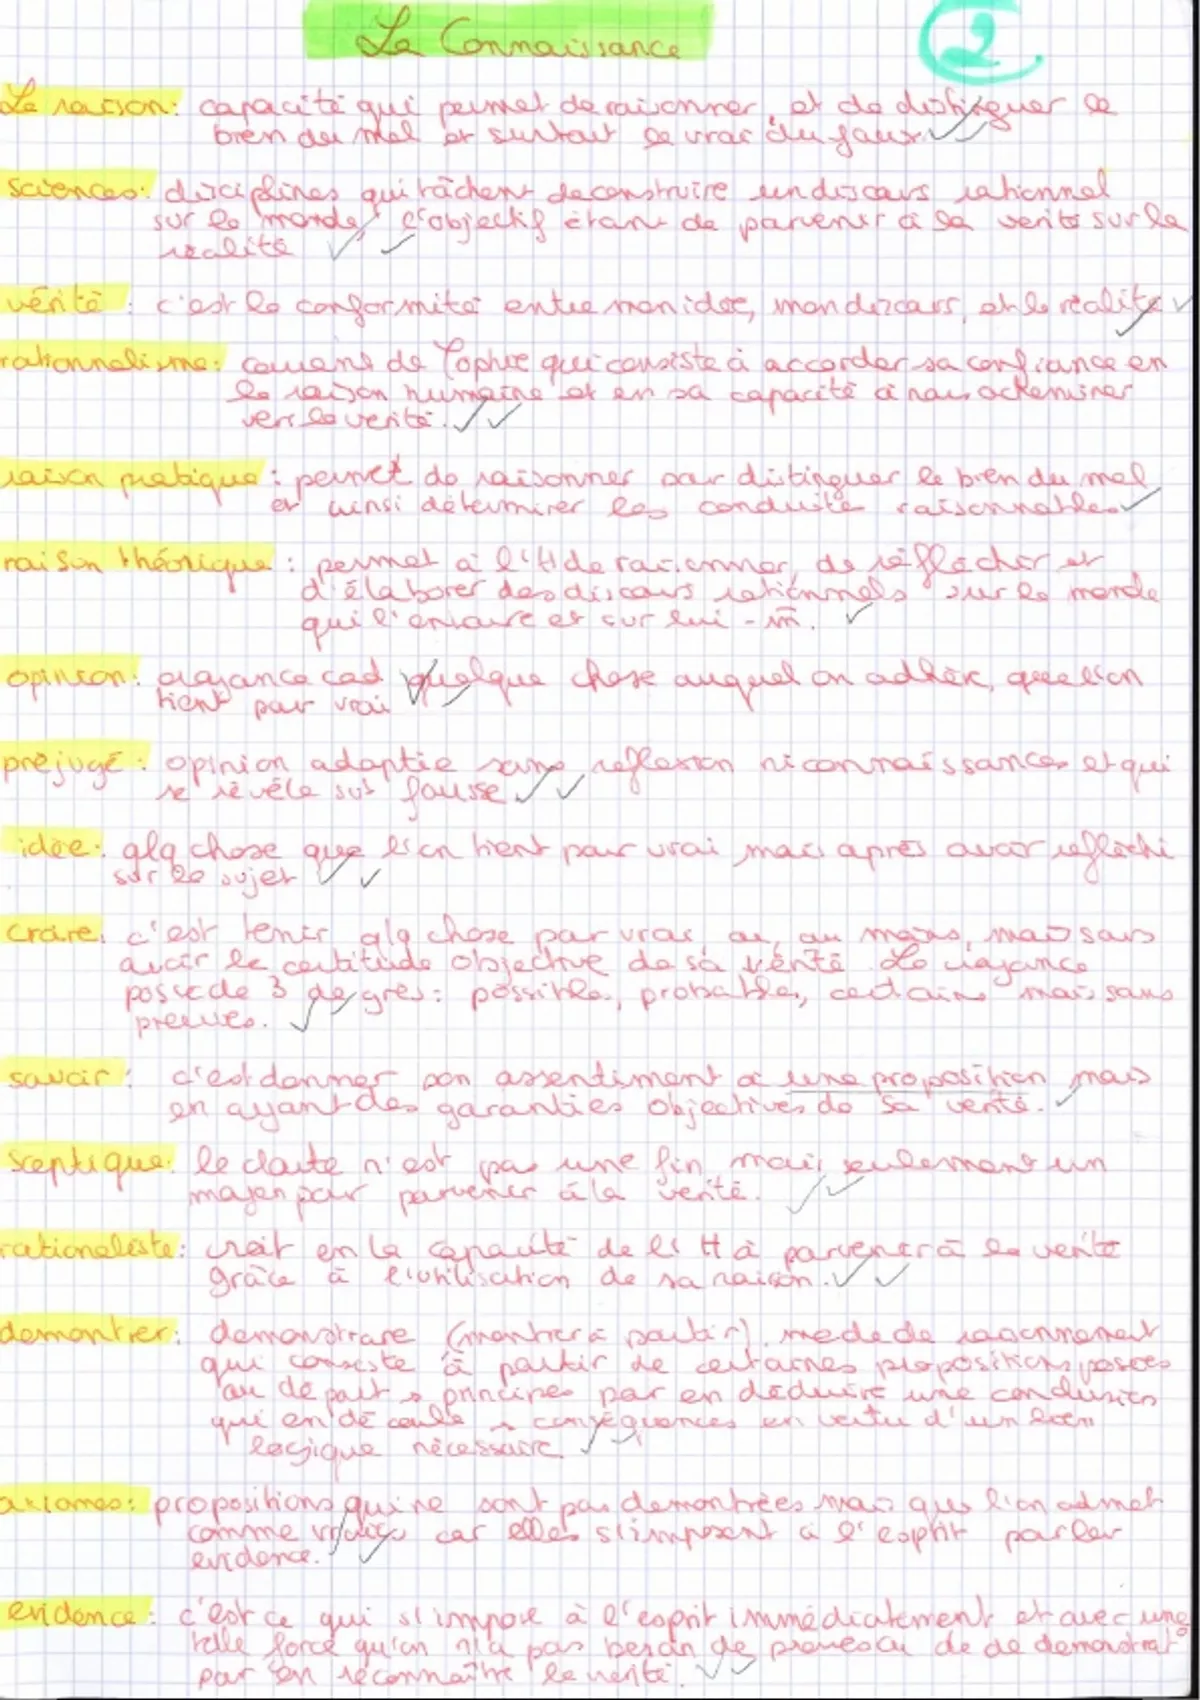 La Connaissance
2
La raison: capacité qui permet de raisonner, et de distinguer le
bien du mal et surtout le vrai du faux.
sciences: disciplines qui tâchent de construire un discours rationnel
sur le monde, l'objectif étant de parvenir à la vérité sur la
réalité
vérité : c'est la conformité entre mon idée, mon discours, et la réalité
rationnalisme: courant de ϕophie qui consiste à accorder sa confiance en
la raison humaine et en sa capacité à nous acheminer
vers la vérité.
raison pratique : permet de raisonner pour distinguer le bien du mal
et ainsi déterminer les conduites raisonnables
raison théorique : permet à l'H de raisonner, de réfléchir et
d'élaborer des discours rationnels sur le monde
qui l'entoure et sur lui-m̄.
opinion: croyance cad quelque chose auquel on adhère, que l'on
tient pour vrai
préjugé : opinion adoptée sans réflexion ni connaissances et qui
se révèle svt fausse
idée: qlq chose que l'on tient pour vrai mais après avoir réfléchi
sur le sujet
croire: c'est tenir qlq chose par vrai ou, au moins, mais sans
avoir la certitude objective de sa vérité. La croyance
possède 3 degrés: possible, probable, certain mais sans
preuves.
savoir : c'est donner son assentiment à une proposition mais
en ayant des garanties objectives de sa vérité.
sceptique: le doute n'est pas une fin, mais seulement un
moyen pour parvenir à la vérité.
rationaliste: croit en la capacité de l'H à parvenir à la vérité
grâce à l'utilisation de sa raison.
demontrer: demonstrare (montrer à partir). mode de raisonnement
qui consiste à partir de certaines propositions posées
au départ → principes pour en déduire une conclusion
qui en découle → conséquences en vertu d'un lien
logique nécessaire
axiomes: propositions qui ne sont pas demontrées mais que l'on admet
comme vraies car elles s'imposent à l'esprit par leur
evidence.
evidence : c'est ce qui s'impose à l'esprit immédiatement et avec une
telle force qu'on n'a pas besoin de preuves ou de de demonstrat°
pour en reconnaître la vérité.